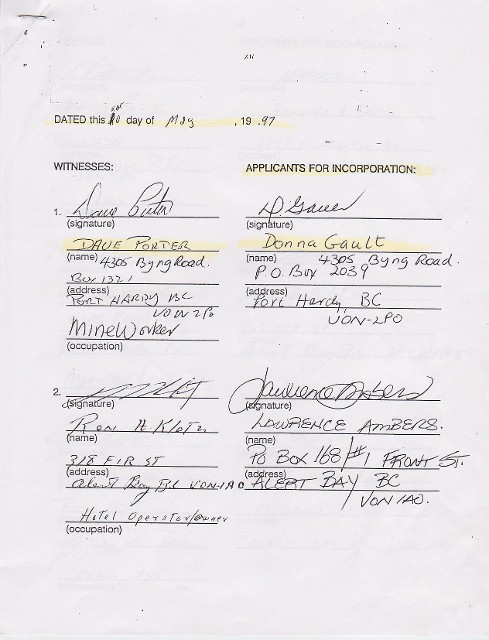 DATED this day of May, 19.97
WITNESSES: APPLICANTS FOR INCORPORATION:
1. Dave Porter
(signature) (signature)
DAVE PORTER Donna Gault
(name) 4305 Byng Road. (name) 4305 Byng Road.
Box 1321 P.O. Box 2039
(address) (address)
PORT HARDY BC Port Hardy BC
V0N 2P0 V0N-2P0
Mine Worker
(occupation)
2.
(signature) (signature)
Ron H. LAWRENCE AMBERS.
(name) (name)
318 FIR ST PO BOX 168/#1 FRONT ST.
(address) (address)
Alert Bay BC V0N-1A0 ALERT BAY BC
V0N 1A0.
Hotel Operator/owner
(occupation)